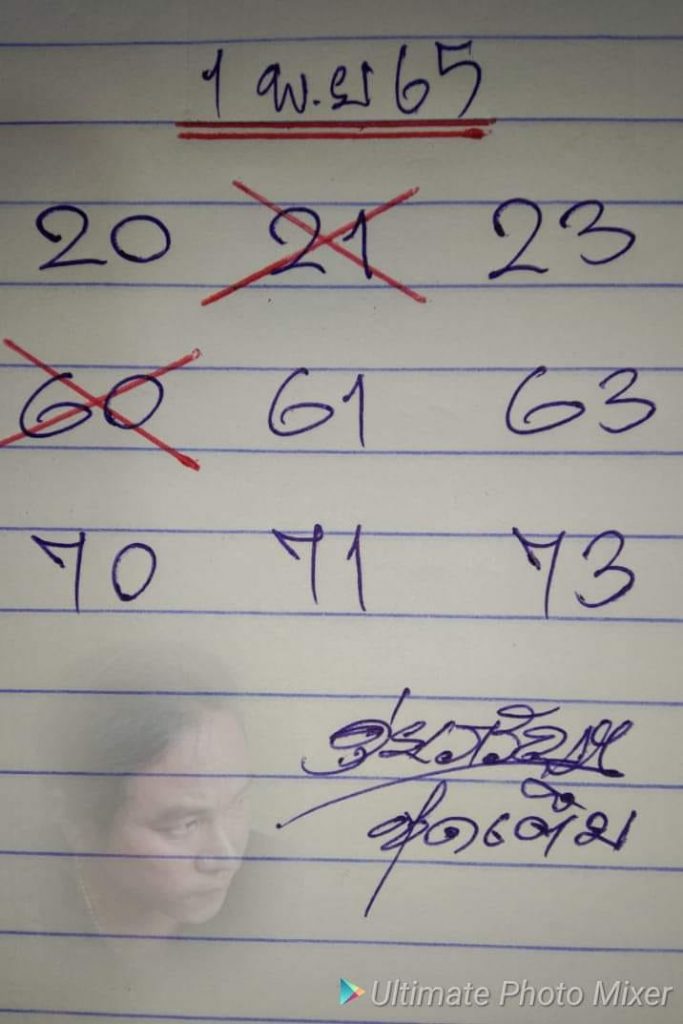 1 พ.ย 65
20 21 23
60 61 63
70 71 73
ชุดเต็ม
Ultimate Photo Mixer